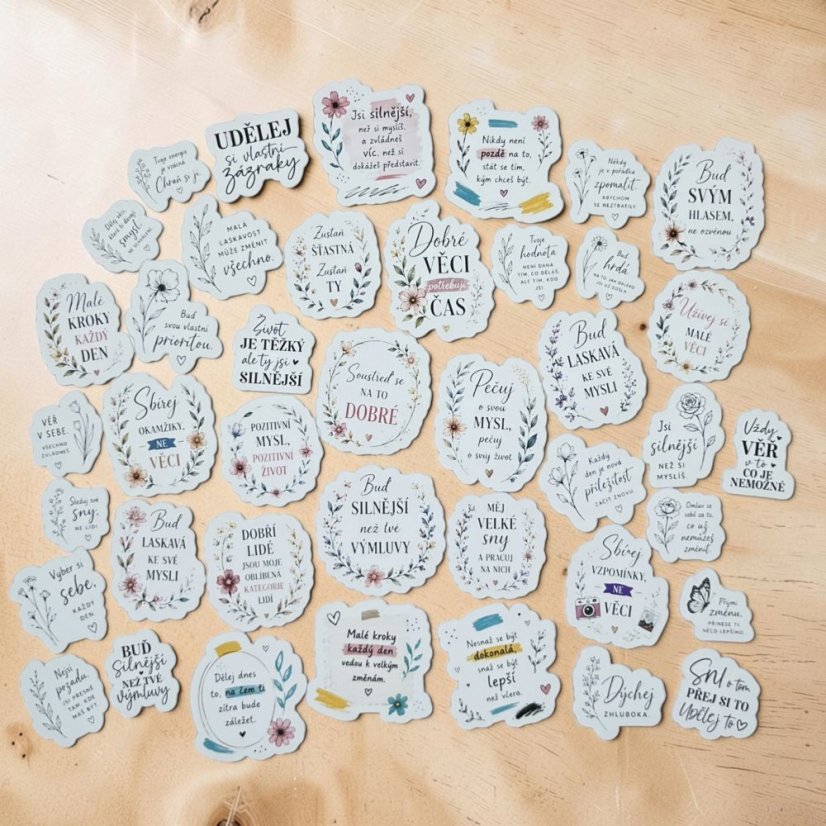 Tvoje energie
je vzácná
Chraň si ji
UDĚLEJ
si vlastní
zázraky
Jsi silnější,
než si myslíš,
a zvládneš
víc, než si
dokážeš představit.
Nikdy není
pozdě na to,
stát se tím,
kým chceš být.
Někdy
je v pořádku
zpomalit,
ABYCHOM
SE NEZTRATILI
Buď
SVÝM
HLASEM,
ne ozvěnou
Dělej věci,
které ti dávají
smysl,
MALÁ
LASKAVOST
MŮŽE ZMĚNIT
všechno.
Zůstaň
ŠŤASTNÁ
Zůstaň
TY
Dobré
VĚCI
potřebují
ČAS
Tvoje
hodnota
NENÍ DÁNA
TÍM, CO DĚLÁŠ,
ALE TÍM, KDO
JSI
Buď
hrdá
NA TO, JAK DALEKO
JSI UŽ DOŠLA
Malé
KROKY
KAŽDÝ
DEN
Buď
svou vlastní
prioritou.
Život
JE TĚŽKÝ
ale ty jsi
SILNĚJŠÍ
Soustřeď se
NA TO
DOBRÉ
Pečuj
o svou
MYSL,
pečuj
o svůj život
Buď
LASKAVÁ
KE SVÉ
MYSLI
Užívej si
MALÉ
VĚCI
VĚŘ
V SEBE.
VŠECHNO
ZVLÁDNEŠ
Sbírej
OKAMŽIKY,
NE
VĚCI
POZITIVNÍ
MYSL,
POZITIVNÍ
ŽIVOT
Každý
den je nová
příležitost
ZAČÍT ZNOVU
Jsi
silnější
NEŽ SI
MYSLÍŠ
Vždy
VĚŘ
v to
CO JE
NEMOŽNÉ
Sleduj své
sny,
NE LIDI
Buď
LASKAVÁ
KE SVÉ
MYSLI
DOBŘÍ
LIDÉ
JSOU MOJE
OBLÍBENÁ
KATEGORIE
LIDÍ
Buď
SILNĚJŠÍ
než tvé
VÝMLUVY
MĚJ
VELKÉ
sny
A PRACUJ
NA NICH
Omluv se
sobě za to,
co už
nemůžeš
změnit.
Vyber si
sebe,
KAŽDÝ
DEN
Sbírej
VZPOMÍNKY,
NE
VĚCI
Přijmi
změnu.
PŘINESE TI
NĚCO LEPŠÍHO.
Nejsi
pozadu.
JSI PŘESNĚ
TAM, KDE
MÁŠ BÝT
BUĎ
silnější
NEŽ TVÉ
výmluvy
Dělej dnes
to, na čem ti
zítra bude
záležet.
Malé kroky
každý den
vedou k velkým
změnám.
Nesnaž se být
dokonalá,
snaž se být
lepší
než včera.
Dýchej
ZHLUBOKA.
SNI o tom
PŘEJ SI TO
Udělej to